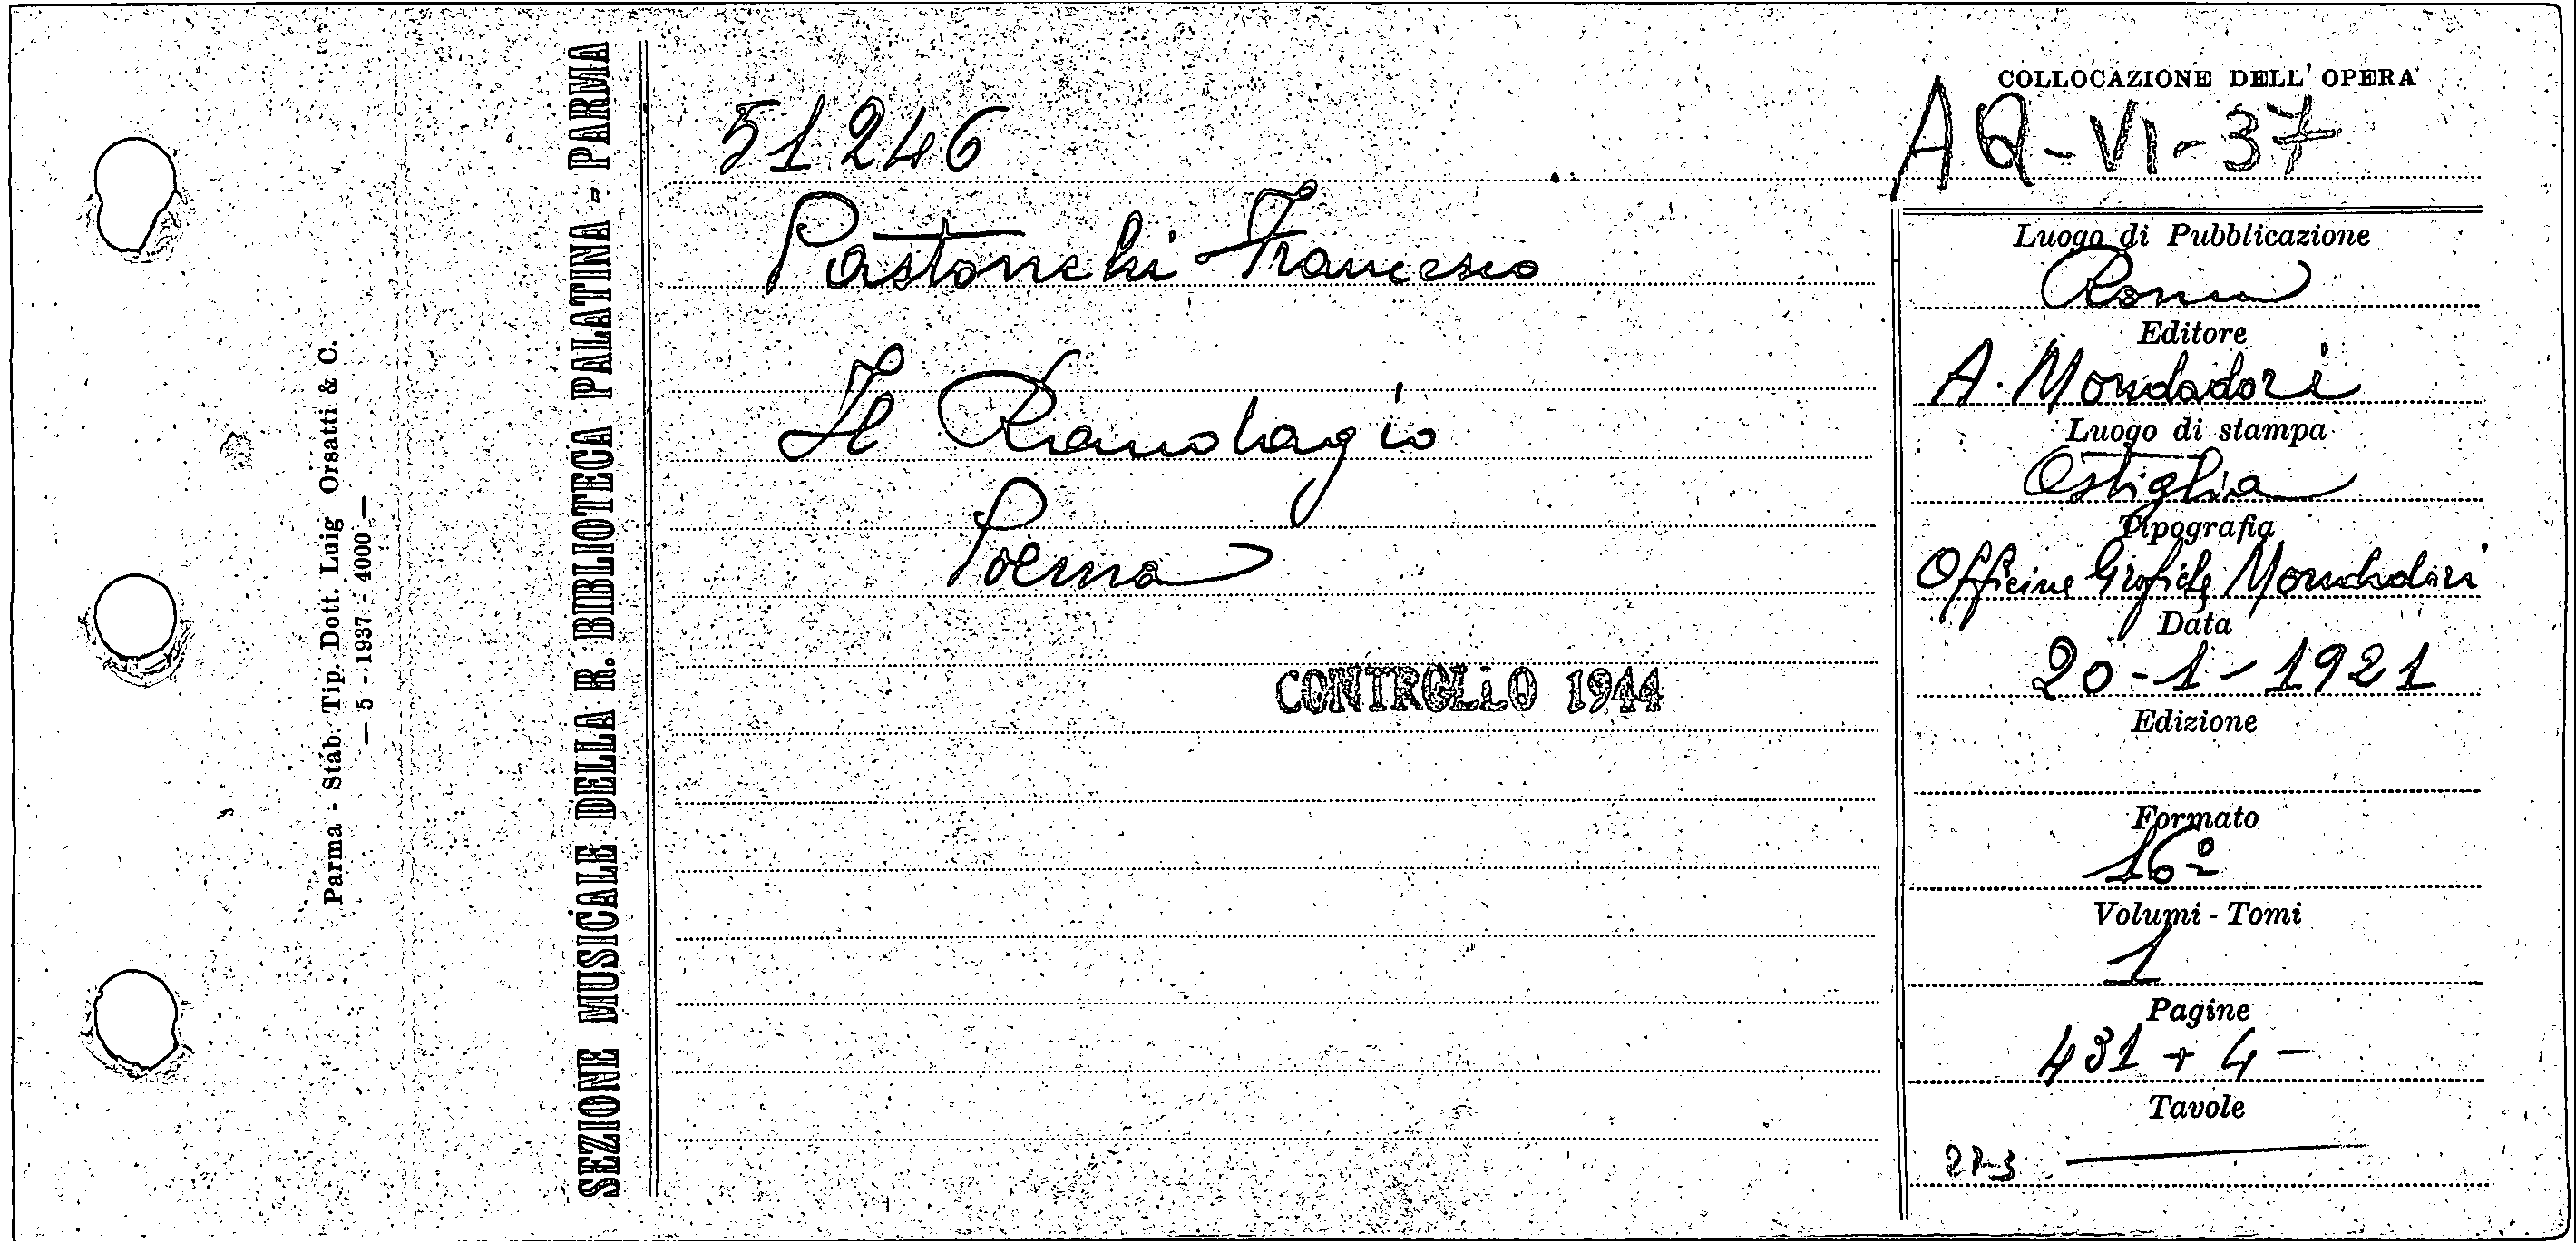 Parma - Stab. Tip. Dott. Luig Orsatti & C.
— 5 - 1937 - 4000 —
SEZIONE MUSICALE DELLA R. BIBLIOTECA PALATINA - PARMA
51246
Pastonchi Francesco
Il Randagio
Poema
CONTROLLO 1944
COLLOCAZIONE DELL' OPERA
AQ-VI-37
Luogo di Pubblicazione
Roma
Editore
A. Mondadori
Luogo di stampa
Ostiglia
Tipografia
Officine Grafiche Mondadori
Data
20-1-1921
Edizione
Formato
16º
Volumi - Tomi
1
Pagine
431 + 4 —
Tavole